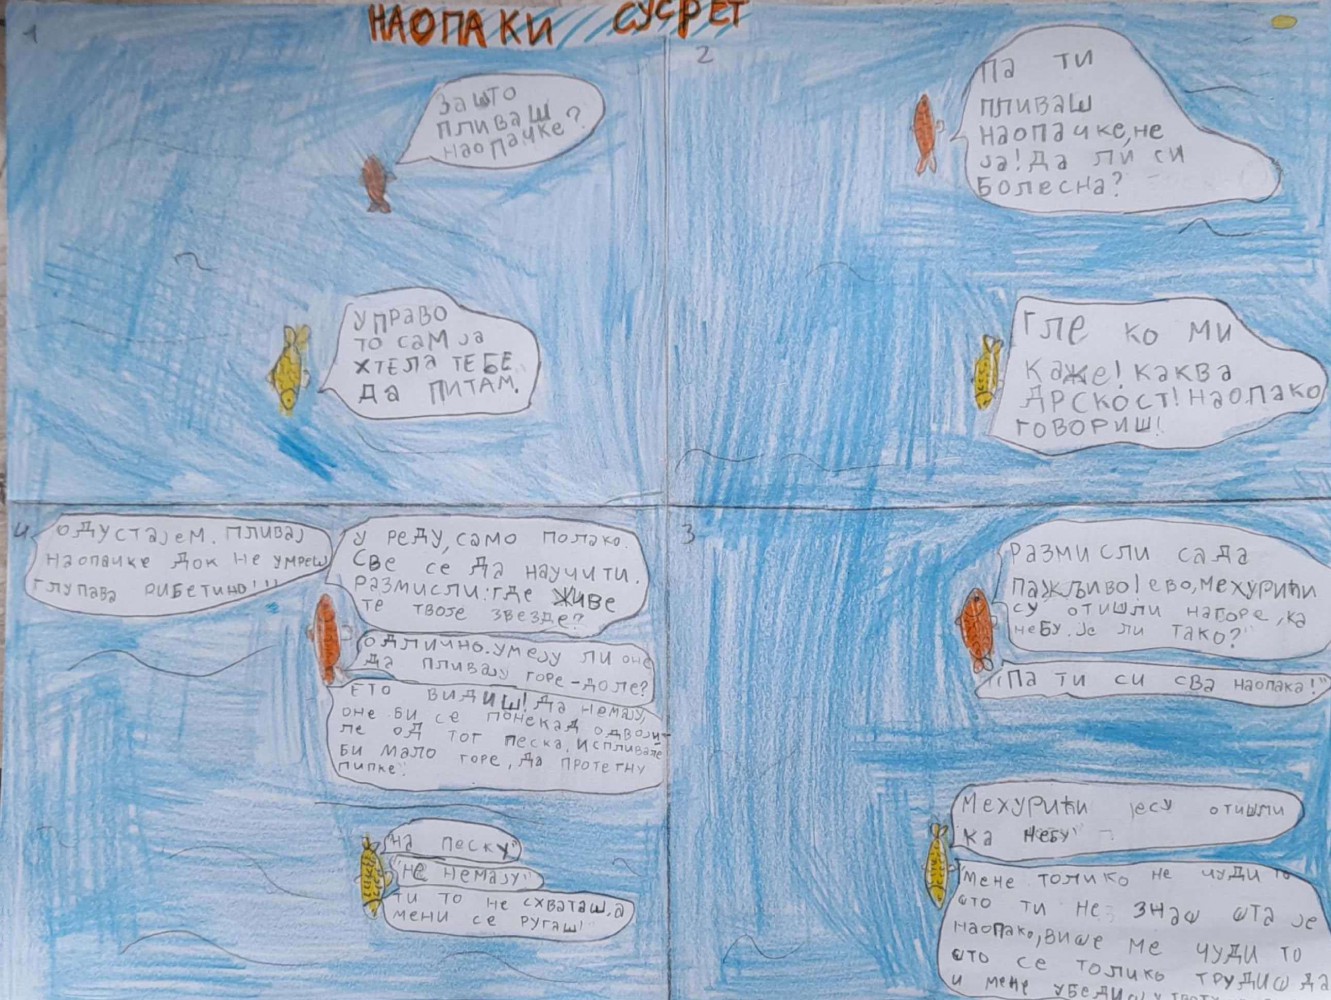 НАОПАКИ СУСРЕТ
1
ЗАШТО
ПЛИВАШ
НАОПАЧКЕ?
УПРАВО
ТО САМ ЈА
ХТЕЛА ТЕБЕ
ДА ПИТАМ.
2
ПА ТИ
ПЛИВАШ
НАОПАЧКЕ, НЕ
ЈА! ДА ЛИ СИ
БОЛЕСНА?
ГЛЕ КО МИ
КАЖЕ! КАКВА
ДРСКОСТ! НАОПАКО
ГОВОРИШ!
3
РАЗМИСЛИ САДА
ПАЖЉИВО! ЕВО, МЕХУРИЋИ
СУ ОТИШЛИ НАГОРЕ, КА
НЕБУ. ЈЕ ЛИ ТАКО?"
"ПА ТИ СИ СВА НАОПАКА!"
МЕХУРИЋИ ЈЕСУ ОТИШЛИ
КА НЕБУ"
"МЕНЕ ТОЛИКО НЕ ЧУДИ ТО
ШТО ТИ НЕ ЗНАШ ШТА ЈЕ
НАОПАКО, ВИШЕ МЕ ЧУДИ ТО
ШТО СЕ ТОЛИКО ТРУДИШ ДА
И МЕНЕ УБЕДИШ У
4
ОДУСТАЈЕМ. ПЛИВАЈ
НАОПАЧКЕ ДОК НЕ УМРЕШ
ГЛУПАВА РИБЕТИНО!!!
У РЕДУ, САМО ПОЛАКО.
СВЕ СЕ ДА НАУЧИТИ.
РАЗМИСЛИ: ГДЕ ЖИВЕ
ТЕ ТВОЈЕ ЗВЕЗДЕ?
ОДЛИЧНО. УМЕЈУ ЛИ ОНЕ
ДА ПЛИВАЈУ ГОРЕ-ДОЛЕ?
ЕТО ВИДИШ! ДА НЕМАЈУ,
ОНЕ БИ СЕ ПОНЕКАД ОДВОЈИ-
ЛЕ ОД ТОГ ПЕСКА, ИСПЛИВАЛЕ
БИ МАЛО ГОРЕ, ДА ПРОТЕГНУ
ПИПКЕ.
"НА ПЕСКУ"
"НЕ НЕМАЈУ"
ТИ ТО НЕ СХВАТАШ, А
МЕНИ СЕ РУГАШ!